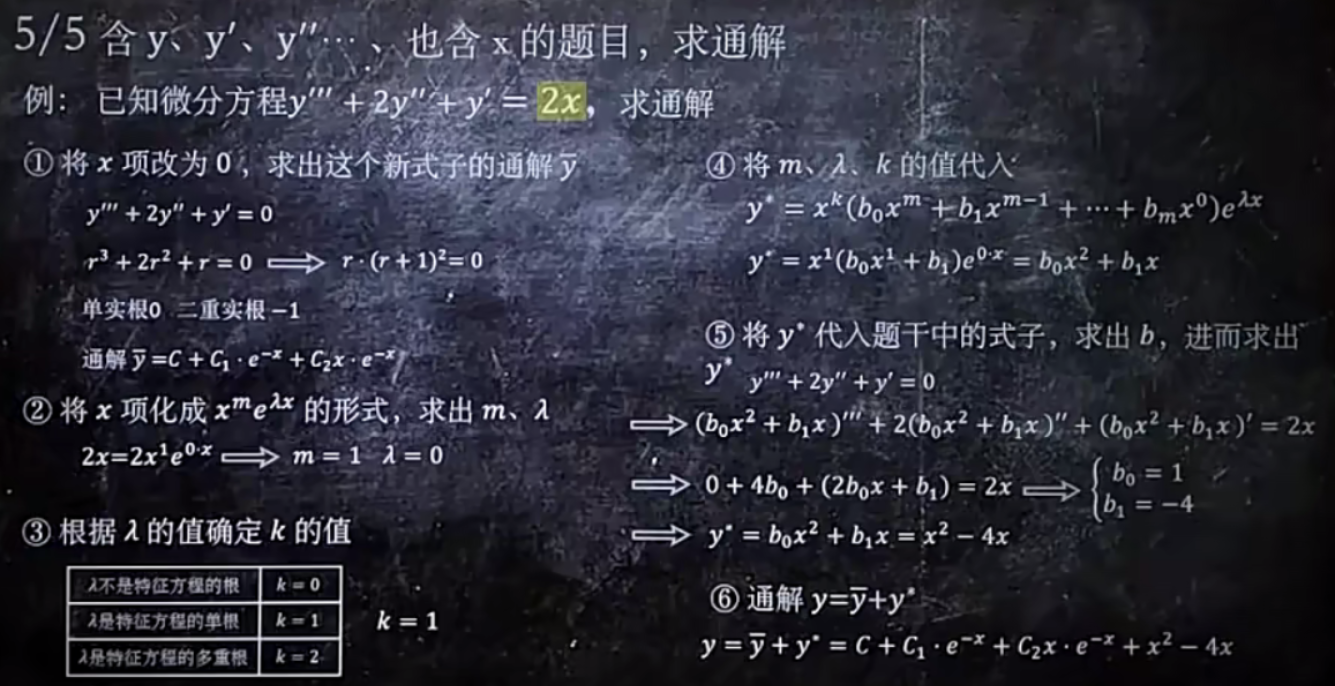 5/5 含 y、y′、y′′…、也含 x 的题目，求通解
例： 已知微分方程y′′′ + 2y′′ + y′ = 2x，求通解
① 将 x 项改为 0 ，求出这个新式子的通解 y̅
y′′′ + 2y′′ + y′ = 0
r³ + 2r² + r = 0 ⟹ r · (r + 1)²= 0
单实根0 二重实根 −1
通解 y̅ =C + C₁ · e⁻ˣ + C₂x · e⁻ˣ
② 将 x 项化成 xᵐe^{λx} 的形式，求出 m、λ
2x=2x¹e^{0·x} ⟹ m = 1 λ = 0
③ 根据 λ 的值确定 k 的值
λ不是特征方程的根 k = 0
λ是特征方程的单根 k = 1
λ是特征方程的多重根 k = 2
k = 1
④ 将 m、λ、k 的值代入
y* = xᵏ(b₀xᵐ + b₁xᵐ⁻¹ + ⋯ + bₘx⁰)e^{λx}
y* = x¹(b₀x¹ + b₁)e^{0·x} = b₀x² + b₁x
⑤ 将 y* 代入题干中的式子，求出 b，进而求出
y* y′′′ + 2y′′ + y′ = 0
⟹ (b₀x² + b₁x)′′′ + 2(b₀x² + b₁x)′′ + (b₀x² + b₁x)′ = 2x
⟹ 0 + 4b₀ + (2b₀x + b₁) = 2x ⟹ { b₀ = 1
b₁ = −4
⟹ y* = b₀x² + b₁x = x² − 4x
⑥ 通解 y=y̅+y*
y = y̅ + y* = C + C₁ · e⁻ˣ + C₂x · e⁻ˣ + x² − 4x